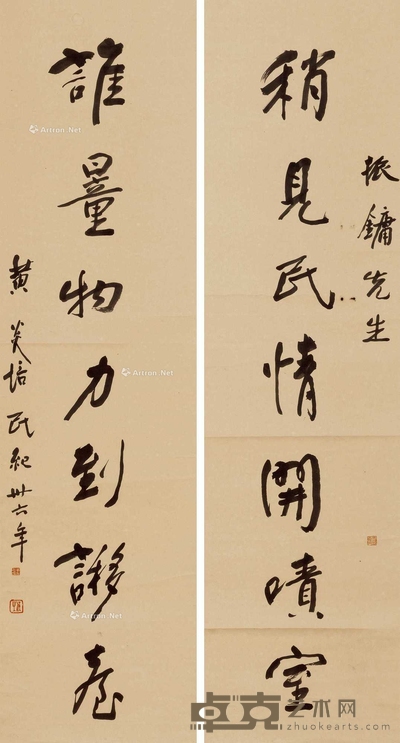 振鏞先生
稍見民情開嘖室
誰量物力到謻臺
黃炎培民紀卅六年
Artron.Net
Artron.Net
Artron.Net
Artron.Net
Artron.Net
卓克艺术网
www.zhuokearts.com